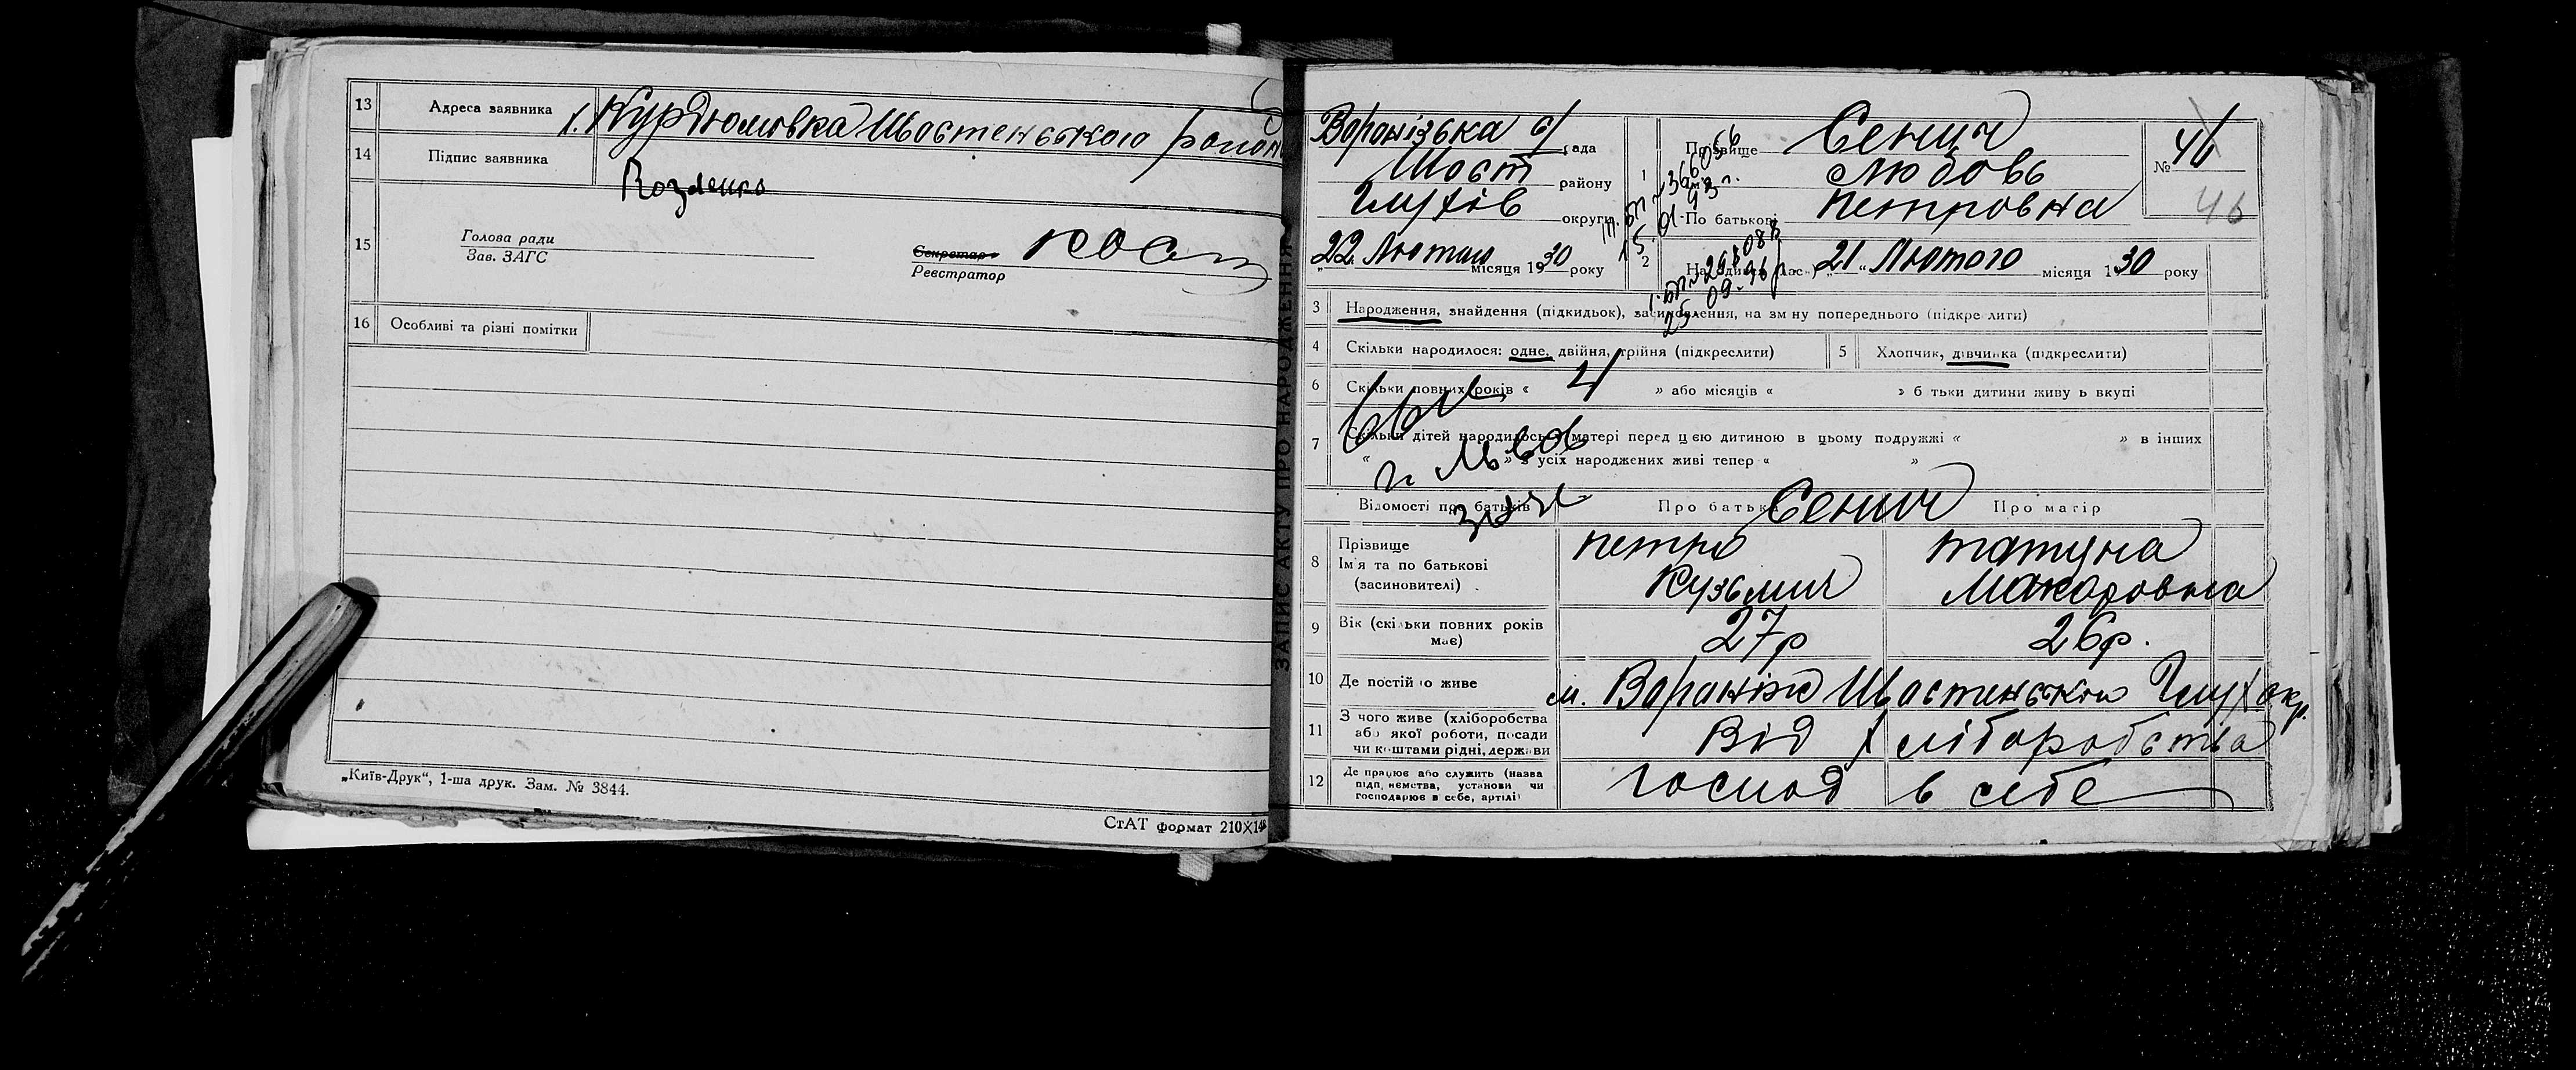 13 Адреса заявника с. Курдюмовка Шостенського район
14 Підпис заявника
15 Голова ради
Зав. ЗАГС
Секретар
Реєстратор
16 Особливі та різні помітки
„Київ-Друк“, 1-ша друк. Зам. № 3844.
СтАТ формат 210X14
ЗАПИС АКТУ ПРО НАРОДЖЕННЯ
Воронізька с/рада
Шост району
Глухів округи
„22“ Лютого місяця 1930 року
1 Прізвище Сенич
Любовь
По батькові Петровна
№ 46
46
2 „21“ Лютого місяця 1930 року
3 Народження, знайдення (підкидьок), засиновлення, на зміну попереднього (підкреслити)
4 Скільки народилося: одне, двійня, трійня (підкреслити)
5 Хлопчик, дівчинка (підкреслити)
6 Скільки повних років « 4 » або місяців « » батьки дитини живуть вкупі
7 Скільки дітей народилось у матері перед цією дитиною в цьому подружжі « » в інших
« » з усіх народжених живі тепер « »
г. Львов
Відомості про батьків Про батька Про матір
Сенич
8 Прізвище
Ім'я та по батькові
(засиновителі)
Петро
Кузьмич
Татяна
Макаровна
9 Вік (скільки повних років має) 27р 26р.
10 Де постійно живе м. Вороніж Шостенського Глух окр.
11 З чого живе (хліборобства
або якої роботи, посади
чи коштами рідні, держави
Від хліборобства
12 Де працює або служить (назва
підприємства, установи чи
господарює в себе, артілі)
господ в себе